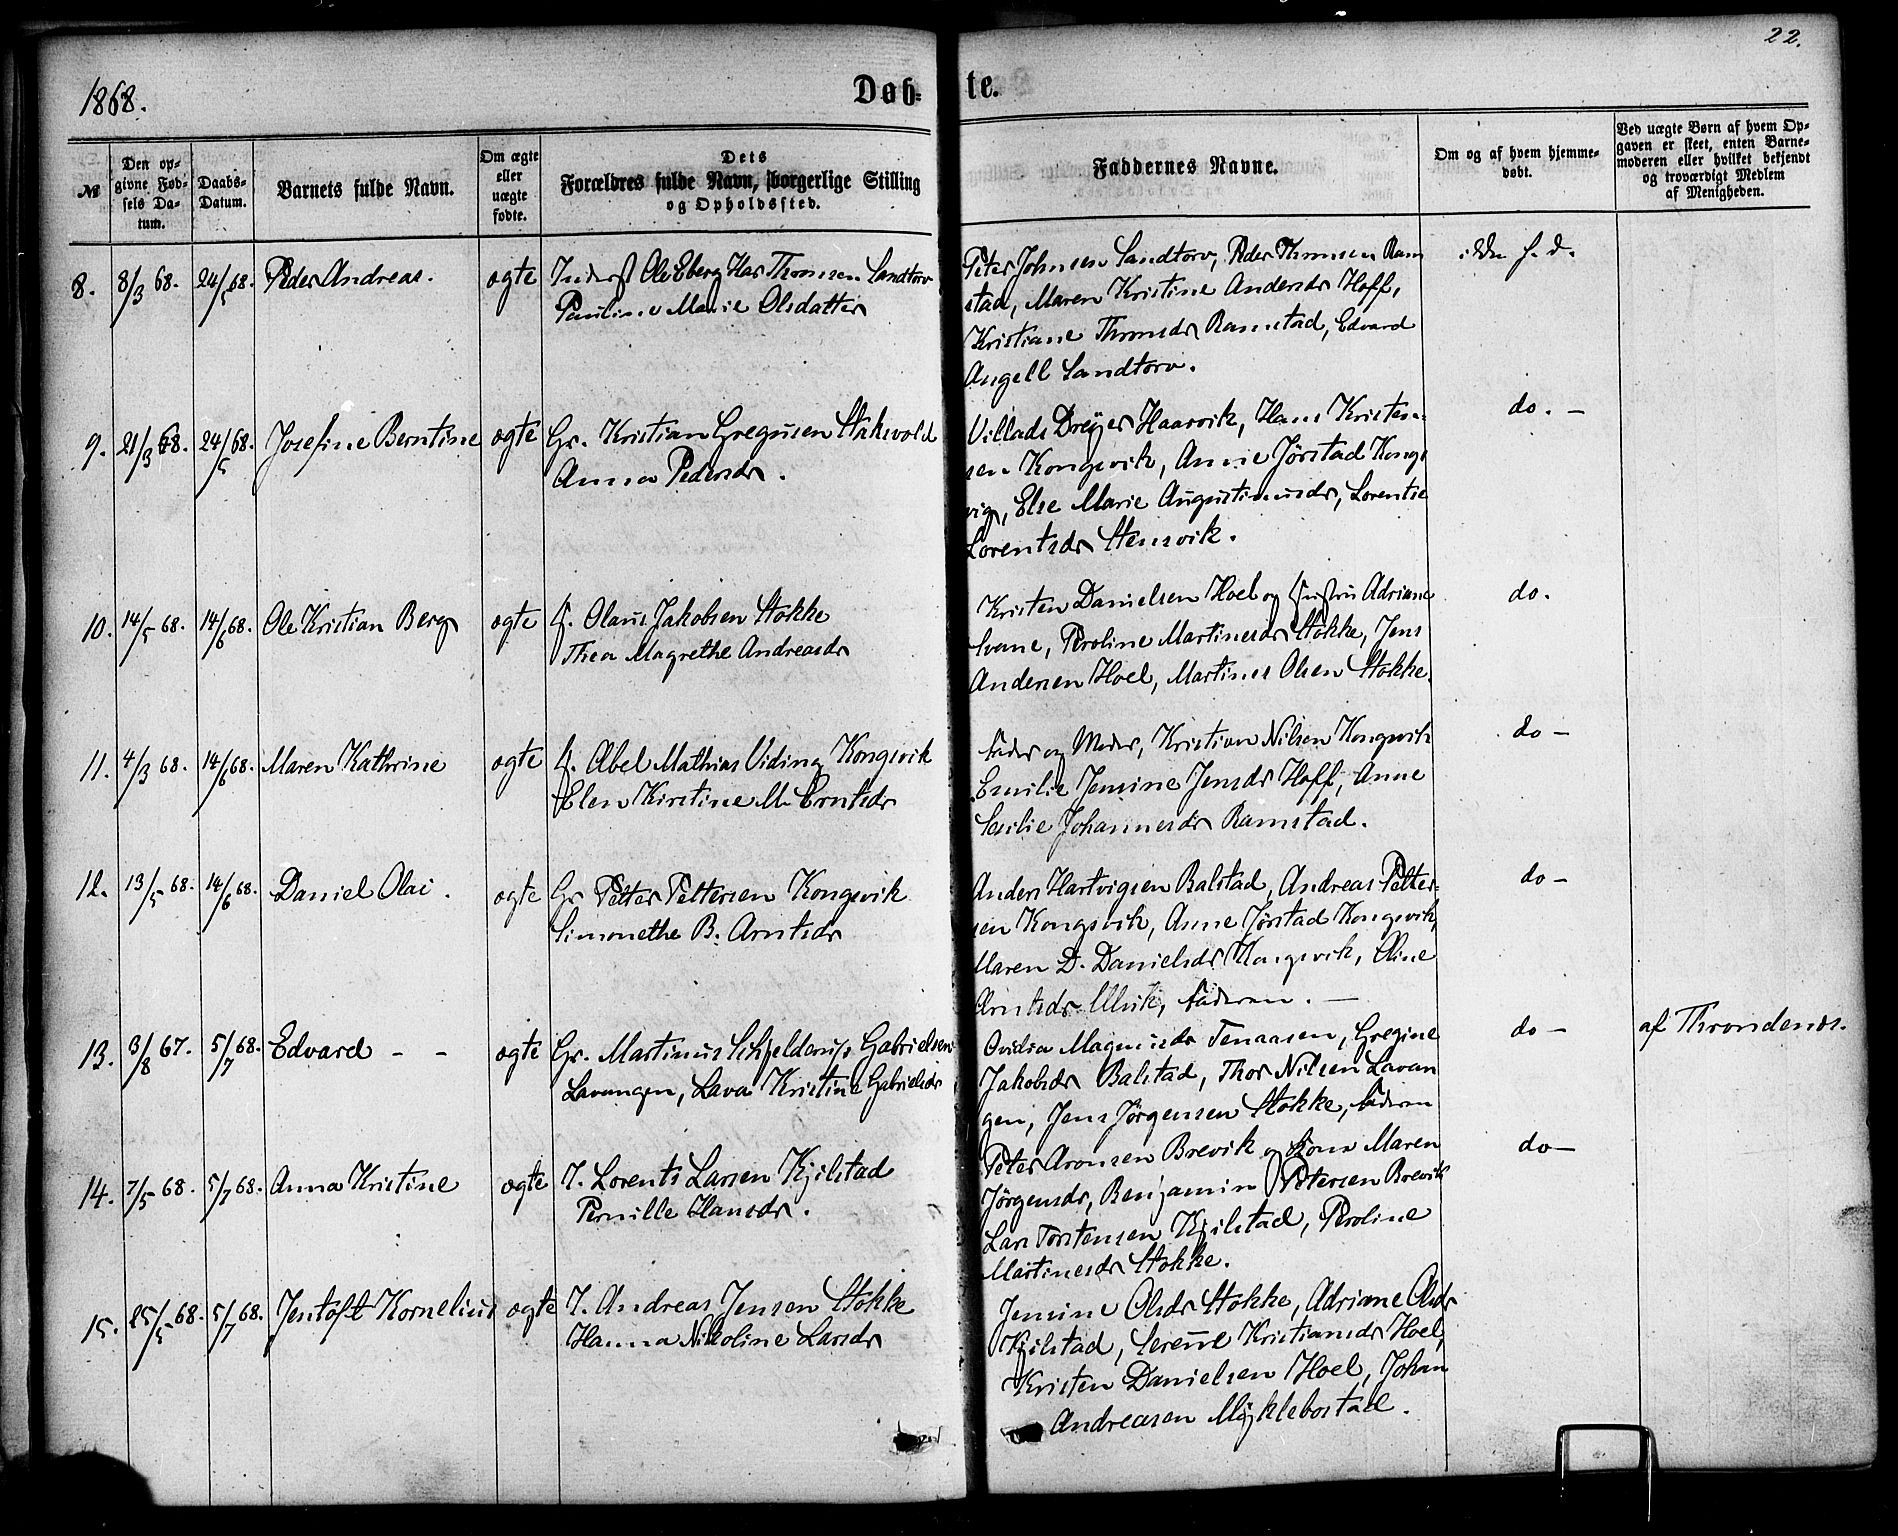 22.
1868.
Døb- te.
№
Den op-
givne Fød-
sels Da-
tum.
Daabs-
Datum.
Barnets fulde Navn.
Om ægte
eller
uægte
fødte.
Dets
Forældres fulde Navn, borgerlige Stilling
og Opholdssted.
Faddernes Navne.
Om og af hvem hjemme-
døbt.
Ved uægte Børn af hvem Op-
gaven er skeet, enten Barne-
moderen eller hvilket bekjendt
og troværdigt Medlem
af Menigheden.
8. 8/3 68. 24/5 68. Peder Andreas. ægte Inderst Ole Eberg Has Thomsen Sandtorv
Pauline Marie Olsdatter
Peter Johnsen Sandtorv, Peder Thomsen Ram
stad, Maren Kristine Andersdr Hoff,
Kristiane Thomsdr Ramstad, Edvard
Angell Sandtorv.
ikke h. d.
9. 21/3 68. 24/5 68. Josefine Berntine ægte Gr. Kristian Gregusen Stakvold
Anna Pedersdr.
Villads Dreyer Haarvik, Hans Kristen-
sen Kongsvik, Anne Jørstad Kongs
vig, Else Marie Augustinusdr, Lorentse
Lorentsdr Stensvik.
do. —
10. 14/5 68. 14/6 68. Ole Kristian Berg ægte F. Olaus Jakobsen Stokke
Thea Magrethe Andreasdr
Kristen Danielsen Hoel og Hustru Adriane
Svane, Peroline Martinesdr Stokke, Jens
Andersen Hoel, Martines Olsen Stokke.
do.
11. 4/3 68. 14/6 68. Maren Kathrine ægte F. Abel Mathias Viding Kongsvik
Elen Kirstine M. Erntsdr
Fader og Moder, Kristian Nilsen Kongsvik
Emilie Jensine Jensdr Hoff, Anne
Cecilie Johannesdr Ramstad.
do —
12. 13/5 68. 14/6 68. Daniel Olai. ægte Gr Petter Pettersen Kongsvik
Simonethe B. Arntsdr
Anders Hartvigsen Balstad, Andreas Petter-
sen Kongsvik, Anne Jørstad Kongsvik,
Maren D. Danielsdr Kongsvik, Oline
Arntsdr Ulvik, Faderen. —
do —
13. 3/8 67. 5/7 68. Edvard — — ægte Gr. Martinus Schjelderup Gabrielsen
Lavangen, Lava Kristine Gabrielsdr
Ovidia Magnusdr Tenaasen, Gregine
Jakobsdr Balstad, Thor Nilsen Lavan
gen, Jens Jørgensen Stokke, Faderen
do —
af Throndenes.
14. 7/5 68. 5/7 68. Anna Kristine ægte I. Lorents Larsen Kjilstad
Pernille Hansdr.
Peter Aronsen Brevik og Kone Maren
Jørgensdr, Benjamin Petersen Brevik
Lars Torstensen Kjilstad, Peroline
Martinesdr Stokke.
do —
15. 25/5 68. 5/7 68. Jentoft Kornelius ægte I. Andreas Jensen Stokke
Hanna Nikoline Larsdr
Jensine Olsdr Stokke, Adriane Olsdr
Kjilstad, Serene Kristiansdr Hoel,
Kristen Danielsen Hoel, Johan
Andreasen Myklebostad.